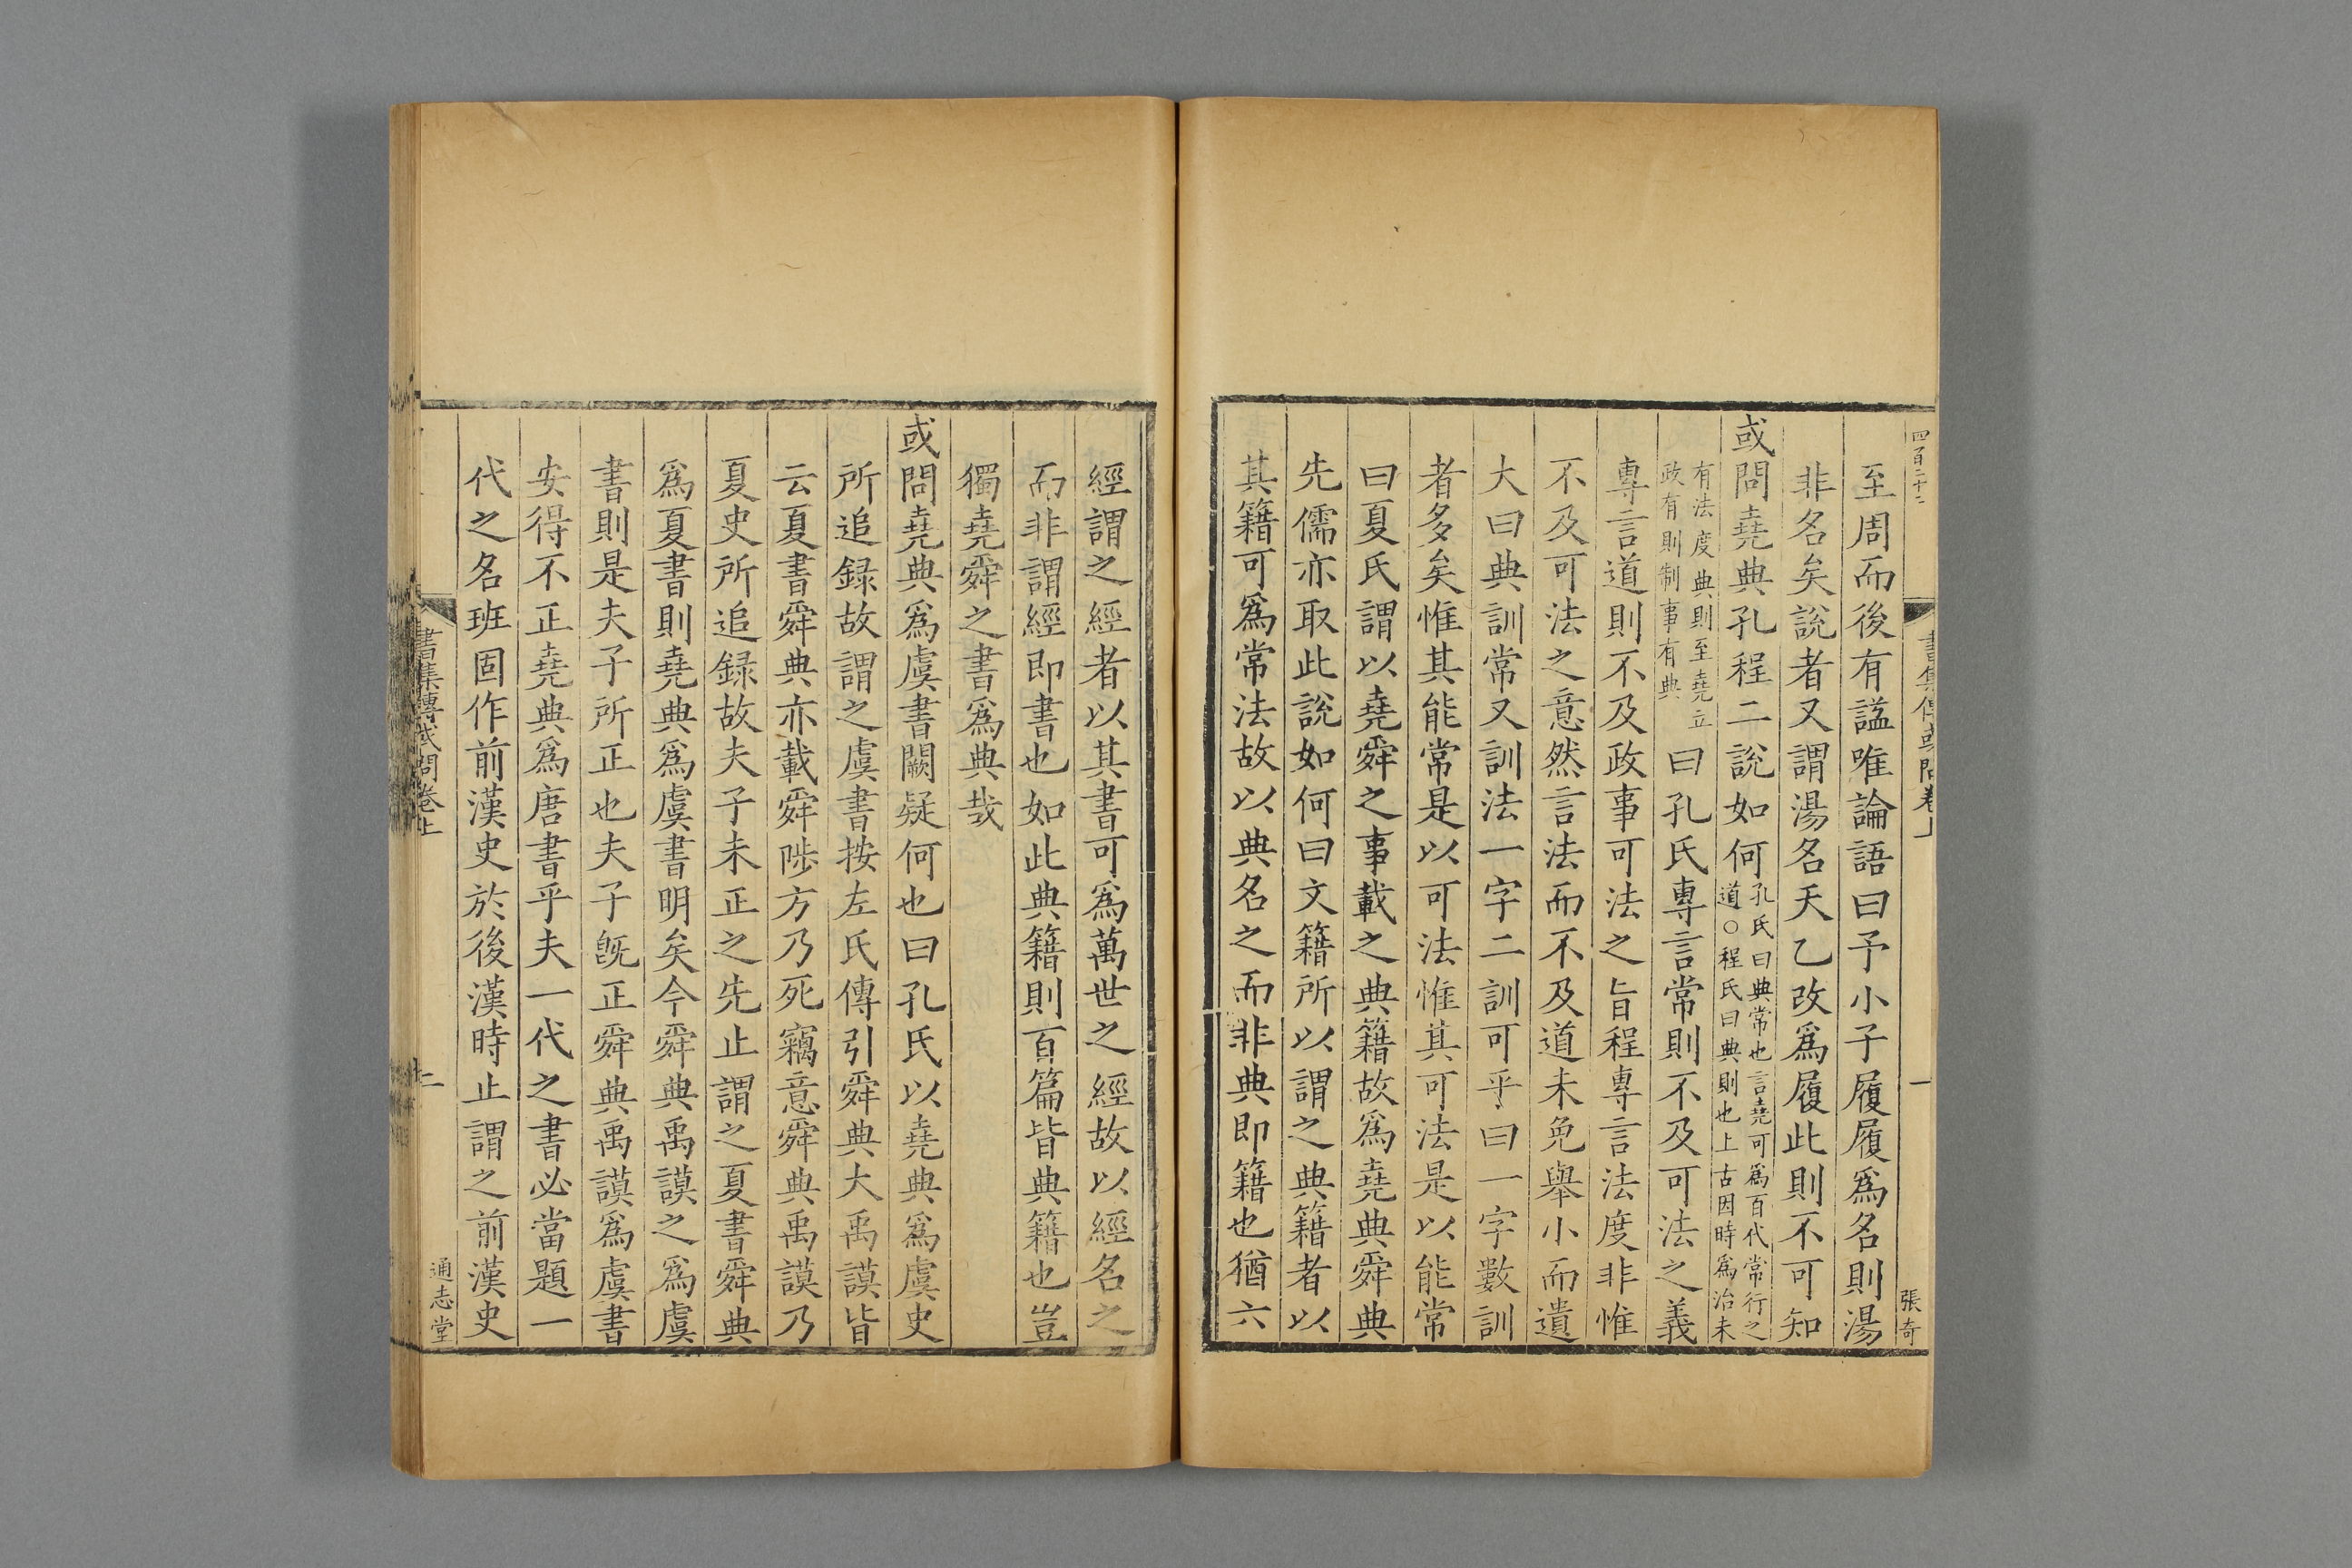 四百二十二
書集傳或問卷上
一
張奇
至周而後有諡唯論語曰予小子履履爲名則湯
非名矣說者又謂湯名天乙改爲履此則不可知
或問堯典孔程二說如何孔氏曰典常也言堯可爲百代常行之
道○程氏曰典則也上古因時爲治未
有法度典則至堯立
政有則制事有典曰孔氏專言常則不及可法之義
專言道則不及政事可法之旨程專言法度非惟
不及可法之意然言法而不及道未免舉小而遺
大曰典訓常又訓法一字二訓可乎曰一字數訓
者多矣惟其能常是以可法惟其可法是以能常
曰夏氏謂以堯舜之事載之典籍故爲堯典舜典
先儒亦取此說如何曰文籍所以謂之典籍者以
其籍可爲常法故以典名之而非典即籍也猶六
經謂之經者以其書可爲萬世之經故以經名之
而非謂經即書也如此典籍則百篇皆典籍也豈
獨堯舜之書爲典哉
或問堯典爲虞書闕疑何也曰孔氏以堯典爲虞史
所追録故謂之虞書按左氏傳引舜典大禹謨皆
云夏書舜典亦載舜陟方乃死竊意舜典禹謨乃
夏史所追録故夫子未正之先止謂之夏書舜典
爲夏書則堯典爲虞書明矣今舜典禹謨之爲虞
書則是夫子所正也夫子既正舜典禹謨爲虞書
安得不正堯典爲唐書乎夫一代之書必當題一
代之名班固作前漢史於後漢時止謂之前漢史
書集傳或問卷上
二
通志堂